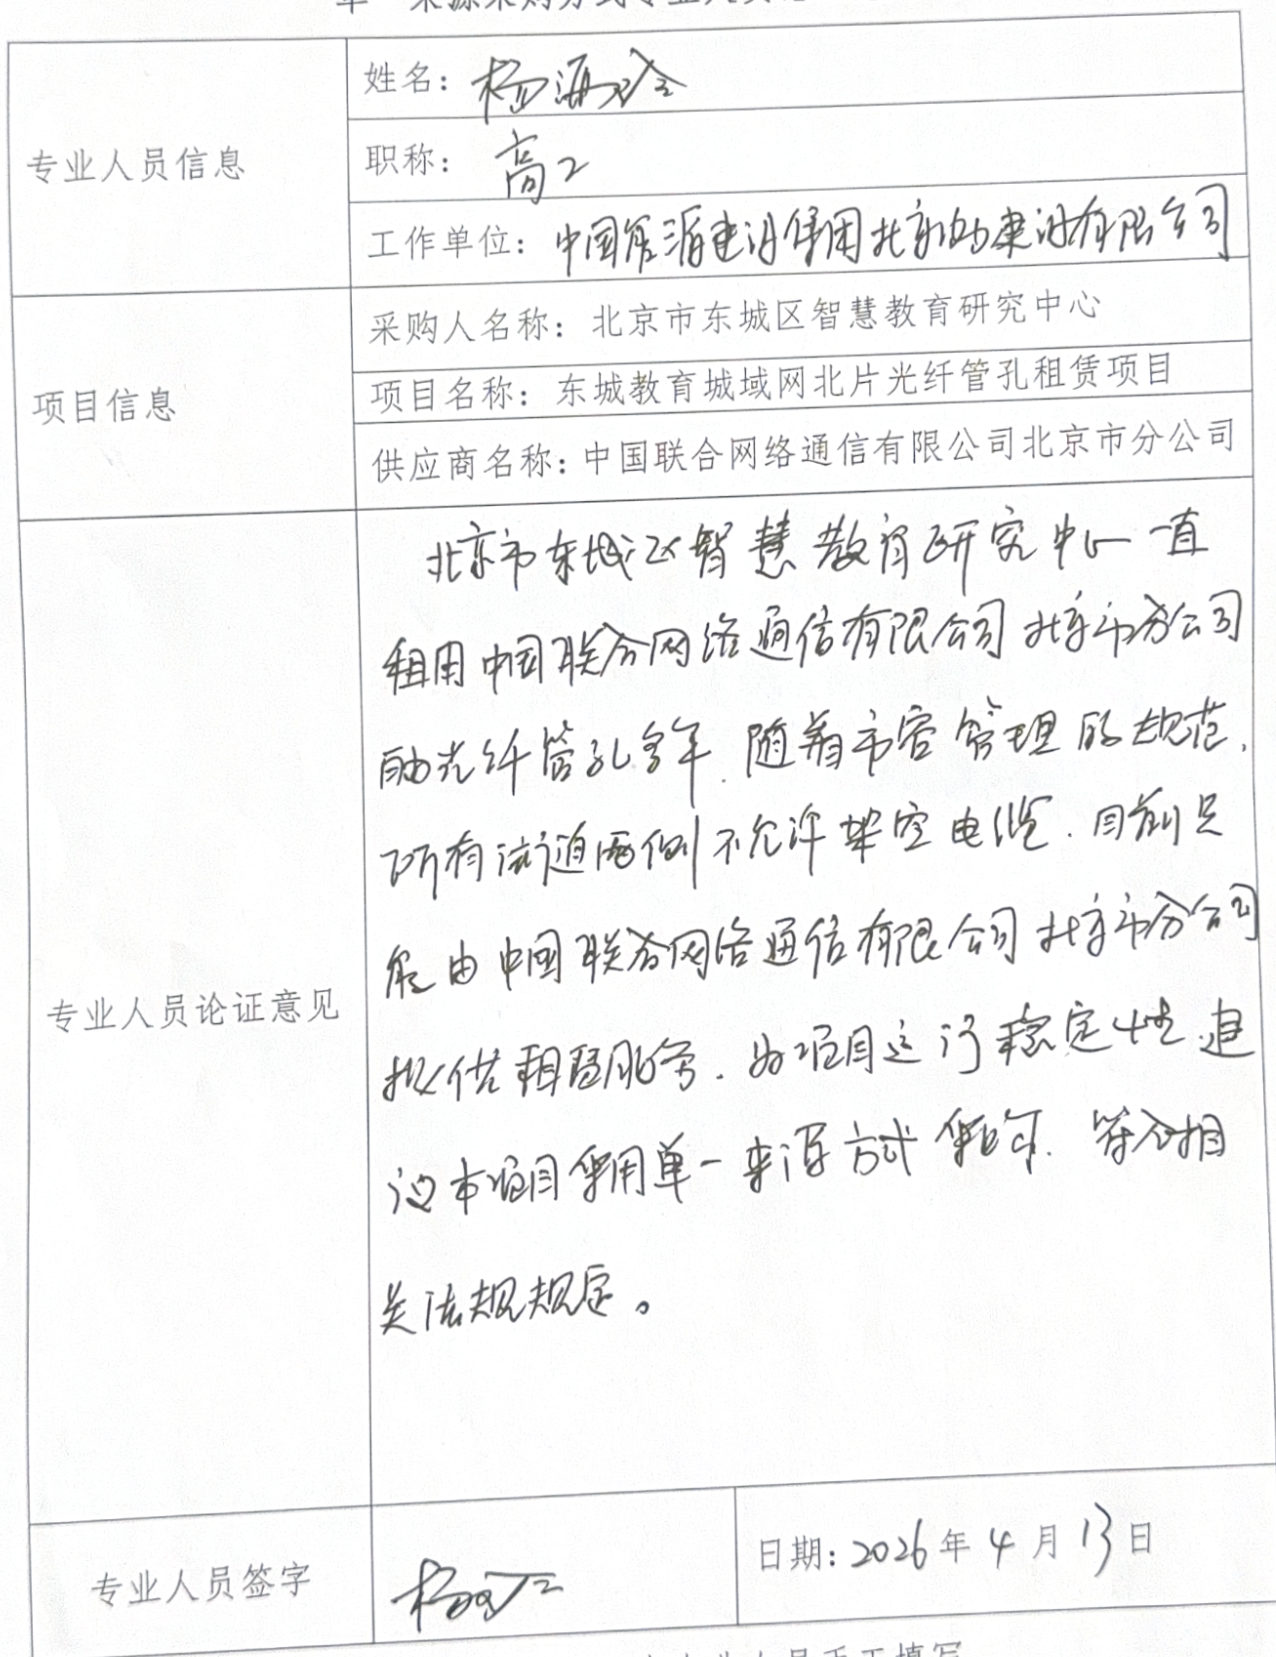 单一来源采购方式专业人员
专业人员信息
姓名：杨海玲
职称：高工
工作单位：中国能源建设集团北京 有限公司
项目信息
采购人名称：北京市东城区智慧教育研究中心
项目名称：东城教育城域网北片光纤管孔租赁项目
供应商名称：中国联合网络通信有限公司北京市分公司
专业人员论证意见
北京市东城区智慧教育研究中心一直
租用中国联合网络通信有限公司北京市分公司
的光纤管孔多年，随着市容管理的规范，
所有 道两侧不允许架空电缆，目前只
能由中国联合网络通信有限公司北京市分公司
提供租赁服务。为项目运行稳定性，建
议本项目采用单一来源方式采购，符合相
关法规规定。
专业人员签字
日期：2026年4月13日
专业人员手工填写